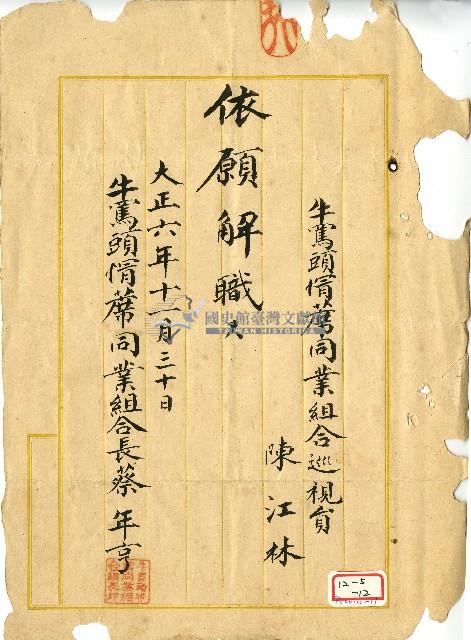 牛罵頭惰蓆同業組合巡視員
陳江林
依願解職ス
大正六年十二月三十日
牛罵頭惰蓆同業組合長蔡年亨
國史館臺灣文獻館
TAIWAN HISTORICA
12-5
-12